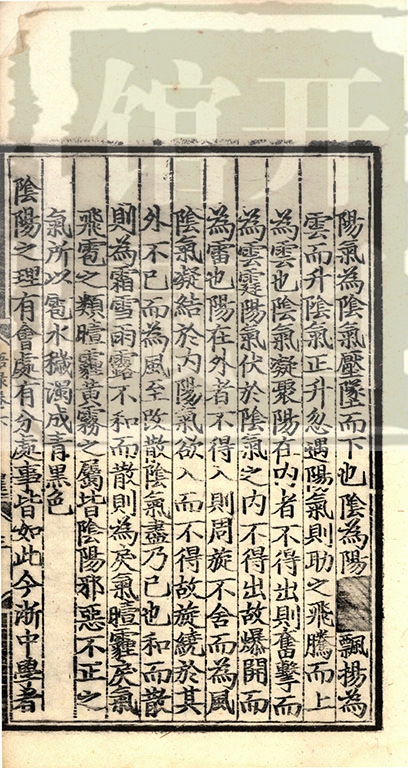 陽氣為陰氣壓墜而下也陰為陽飄揚為
雲而升陰氣正升忽遇陽氣則助之飛騰而上
為雲也陰氣凝聚陽在內者不得出則奮擊而
為雷霆陽氣伏於陰氣之內不得出故爆開而
為雷也陽在外者不得入則周旋不舍而為風
陰氣凝結於內陽氣欲入而不得故旋繞於其
外不已而為風至改散陰氣盡乃已也和而散
則為霜雪雨露不和而散則為戾氣曀霾戾氣
飛雹之類曀霾黃霧之屬皆陰陽邪惡不正之
氣所以雹水穢濁成青黑色
陰陽之理有會處有分處事皆如此今浙中學者